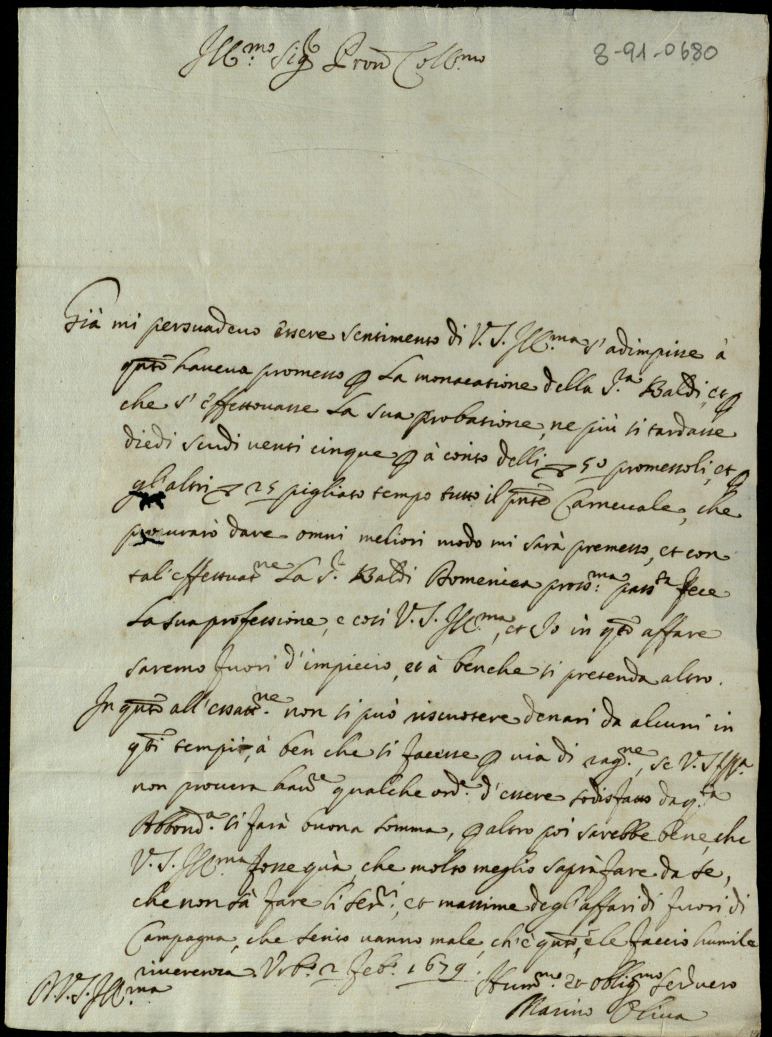 Ill.mo Sig.r Pron Coll.mo
8-91-0680
Già mi persuadevo essere sentimento di V. S. Ill.ma s'adimpisse à
qnto haveva promesso p La monacatione della S.ra Baldi, et p
che s'effettovasse La sua probatione, ne più si tardasse
diedi scudi venti cinque p à conto delli 50 promessoli, et p
gl'altri 25 pigliato tempo tutto il pnte Carnevale, che
procurarò dare omni meliori modo mi sarà premesso, et con
tal'effettuat.ne La S.ra Baldi Domenica pross.ma pass.ta fece
La sua professione, e così V. S. Ill.ma, et Io in qto affare
saremo fuori d'impiccio, et à benche si pretenda altro.
In qnto all'essatt.ne non si può riscuotere denari da alcuni in
qti tempi, à ben che si facesse p via di rag.ne, se V. S. Ill.ma
non provera qualche ord.e d'essere sodisfatto da q.ta
Abbond.a si farà buona somma, p altro poi sarebbe bene, che
V. S. Ill.ma fosse quà, che molto meglio saprà fare da se,
che non sà fare li ser.ri, et massime degl'affari di fuori di
Campagna, che sento vanno male, ch'è qnto, e le faccio humile
riverenza. Urb.o 2 Feb.o 1679.
D. V. S. Ill.ma
Hum.mo et oblig.mo Ser. vero
Marino Oliva